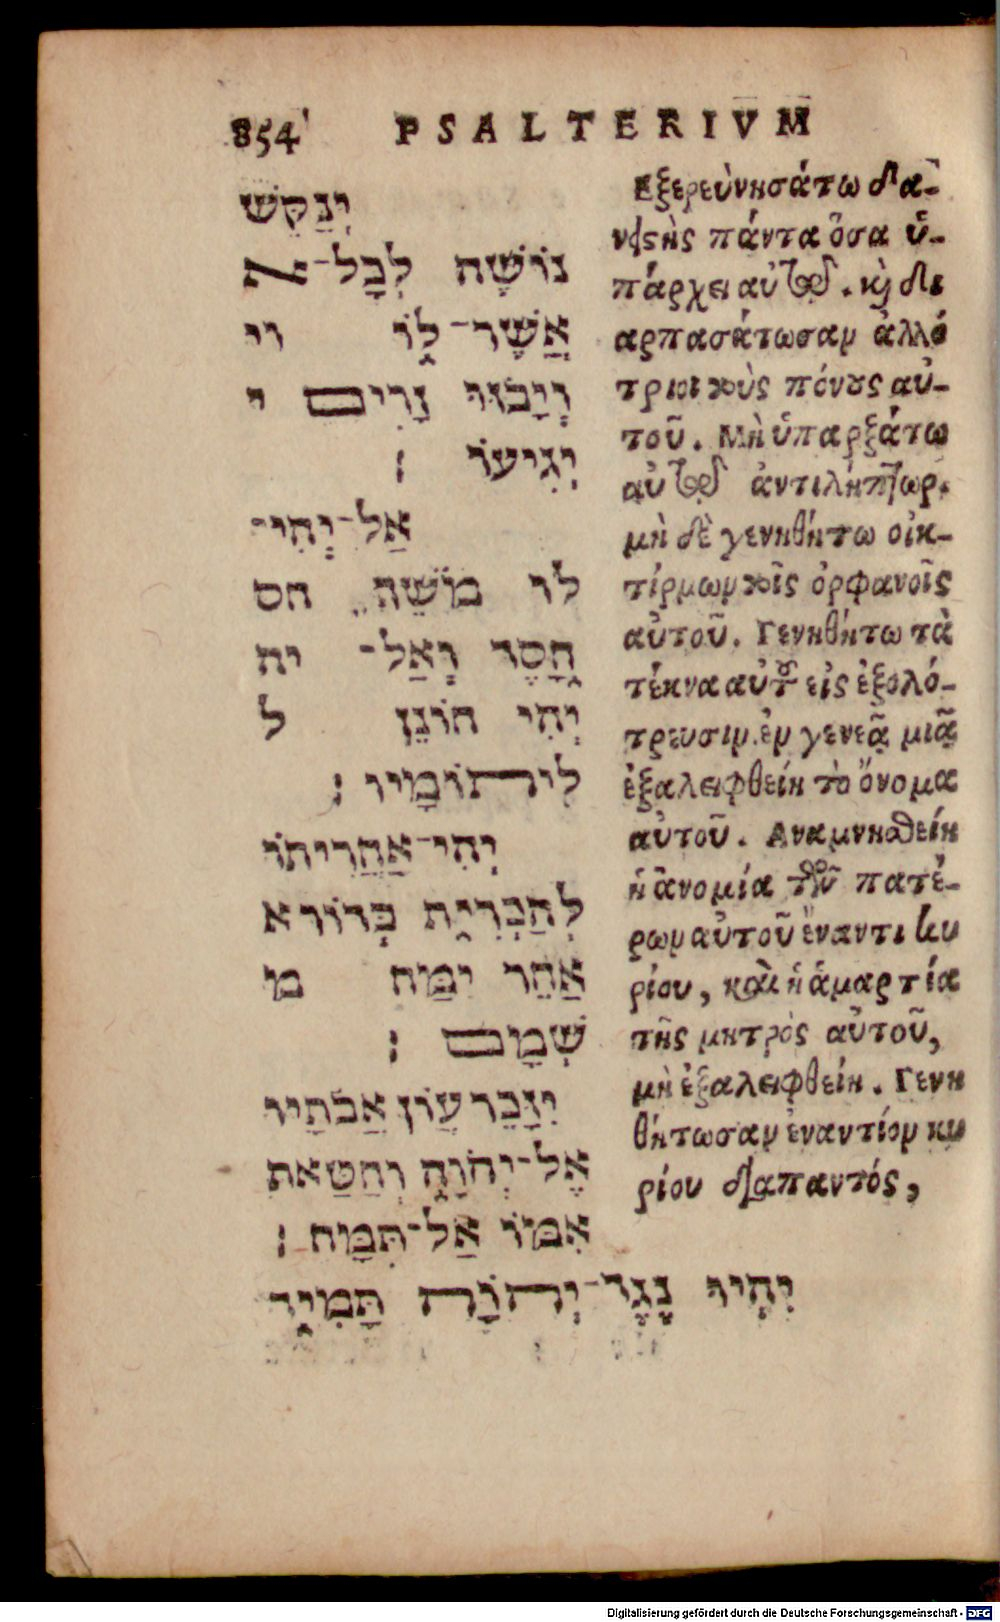 854 PSALTERIVM
יְנַקֵּשׁ
נוֹשֶׁה לְכָל־א
אֲשֶׁר־לוֹ וי
וְיָבֹזּוּ זָרִים י
יְגִיעוֹ :
אַל־יְהִי־
לוֹ מֹשֵׁךְ חס
חָסֶד וְאַל־ יה
יְהִי חוֹנֵן ל
לִיתוֹמָיו :
יְהִי־אַחֲרִיתוֹ
לְהַכְרִית בְּדוֹר א
אַחֵר יִמַּח מ
שְׁמָם :
יִזָּכֵר עֲוֹן אֲבֹתָיו
אֶל־יְהֹוָה וְחַטַּאת
אִמּוֹ אַל־תִּמָּח :
יִהְיוּ נֶגֶד־יְהוָֹה תָּמִיד
Εξερευνησάτω δα-
νειϛὴς πάντα ὅσα ὑ-
πάρχει αὐτοῦ. καὶ δι
αρπασάτωσαν ἀλλό
τριοι τοὺς πόνους αὐ-
τοῦ. Μὴ ὑπαρξάτω
αὐτῷ ἀντιλήπτωρ.
μὴ δὲ γενηθήτω οἰκ-
τίρμων τοῖς ὀρφανοῖς
αὐτοῦ. Γενηθήτω τὰ
τέκνα αὐτοῦ εἰς ἐξολό-
τρευσιν. ἐν γενεᾷ μιᾷ
ἐξαλειφθείη τὸ ὄνομα
αὐτοῦ. Αναμνησθείη
ἡ ἀνομία τῶν πατέ-
ρων αὐτοῦ ἔναντι κυ
ρίου, καὶ ἡ ἁμαρτία
τῆς μητρὸς αὐτοῦ,
μὴ ἐξαλειφθείη. Γενη
θήτωσαν ἐναντίον κυ
ρίου διαπαντός,
Digitalisierung gefördert durch die Deutsche Forschungsgemeinschaft - DFG